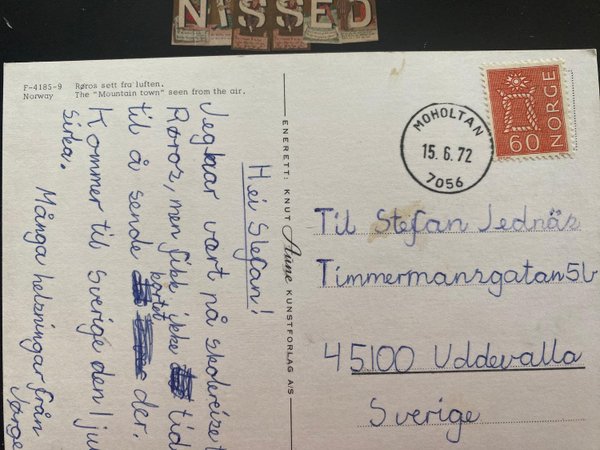 NISSED
F-4185-9 Røros sett fra luften.
Norway The "Mountain town" seen from the air.
Hei Stefan!
Jeg har vært på skolereise t
Røros, men fikk ikke tid
kortet
til å sende der.
Kommer til Sverige den 1 ju
sirka.
Många helsningar från
Jørge
ENERETT: KNUT Aune KUNSTFORLAG A/S
MOHOLTAN
15.6.72
7056
60 NORGE
Til Stefan Jednäs
Timmermansgatan 5b
45100 Uddevalla
Sverige